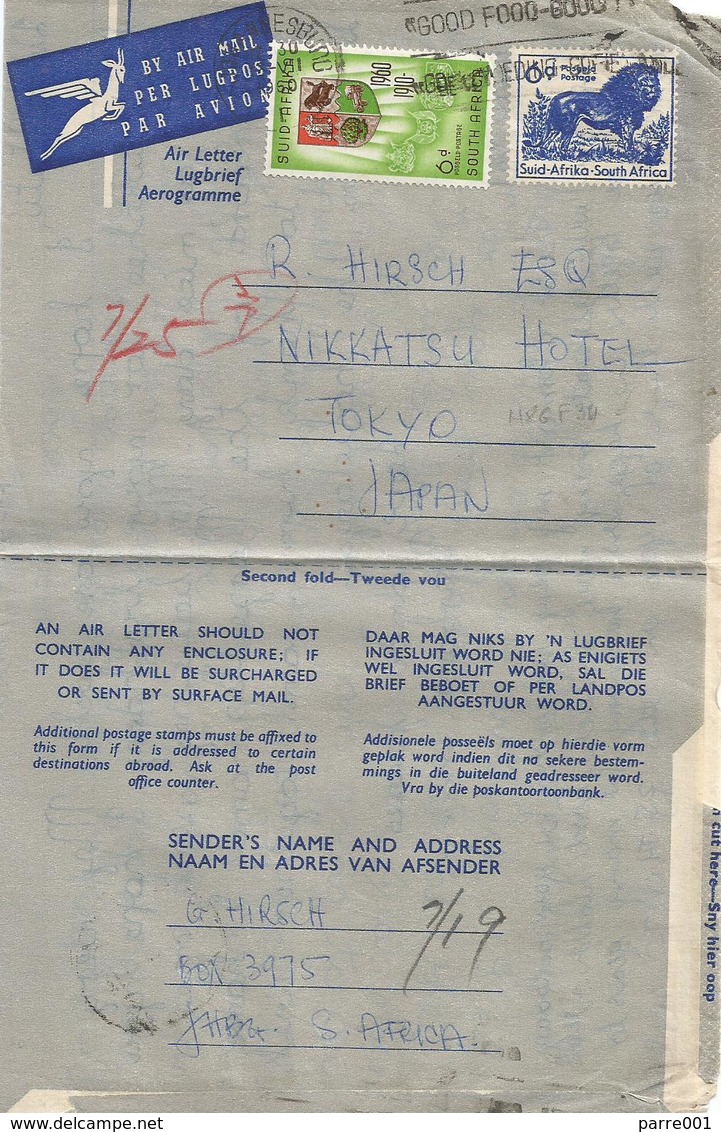 "GOOD FOOD-GOOD
BY AIR MAIL
PER LUGPOS
PAR AVION
SUID-AFRIKA
1960
1910-
6d
POSSEEL-POSTAGE
SOUTH AFRICA
6d Posseël
Postage
Suid-Afrika·South Africa
Air Letter
Lugbrief
Aerogramme
R. HIRSCH ESQ
7/25
NIKKATSU HOTEL
TOKYO
JAPAN
Second fold—Tweede vou
AN AIR LETTER SHOULD NOT
CONTAIN ANY ENCLOSURE; IF
IT DOES IT WILL BE SURCHARGED
OR SENT BY SURFACE MAIL.
DAAR MAG NIKS BY 'N LUGBRIEF
INGESLUIT WORD NIE; AS ENIGIETS
WEL INGESLUIT WORD, SAL DIE
BRIEF BEBOET OF PER LANDPOS
AANGESTUUR WORD.
Additional postage stamps must be affixed to
this form if it is addressed to certain
destinations abroad. Ask at the post
office counter.
Addisionele posseëls moet op hierdie vorm
geplak word indien dit na sekere bestem-
mings in die buiteland geadresseer word.
Vra by die poskantoortoonbank.
SENDER'S NAME AND ADDRESS
NAAM EN ADRES VAN AFSENDER
G. HIRSCH
7/19
BOX 3975
JHBG. S. AFRICA.
cut here—Sny hier oop
parre001